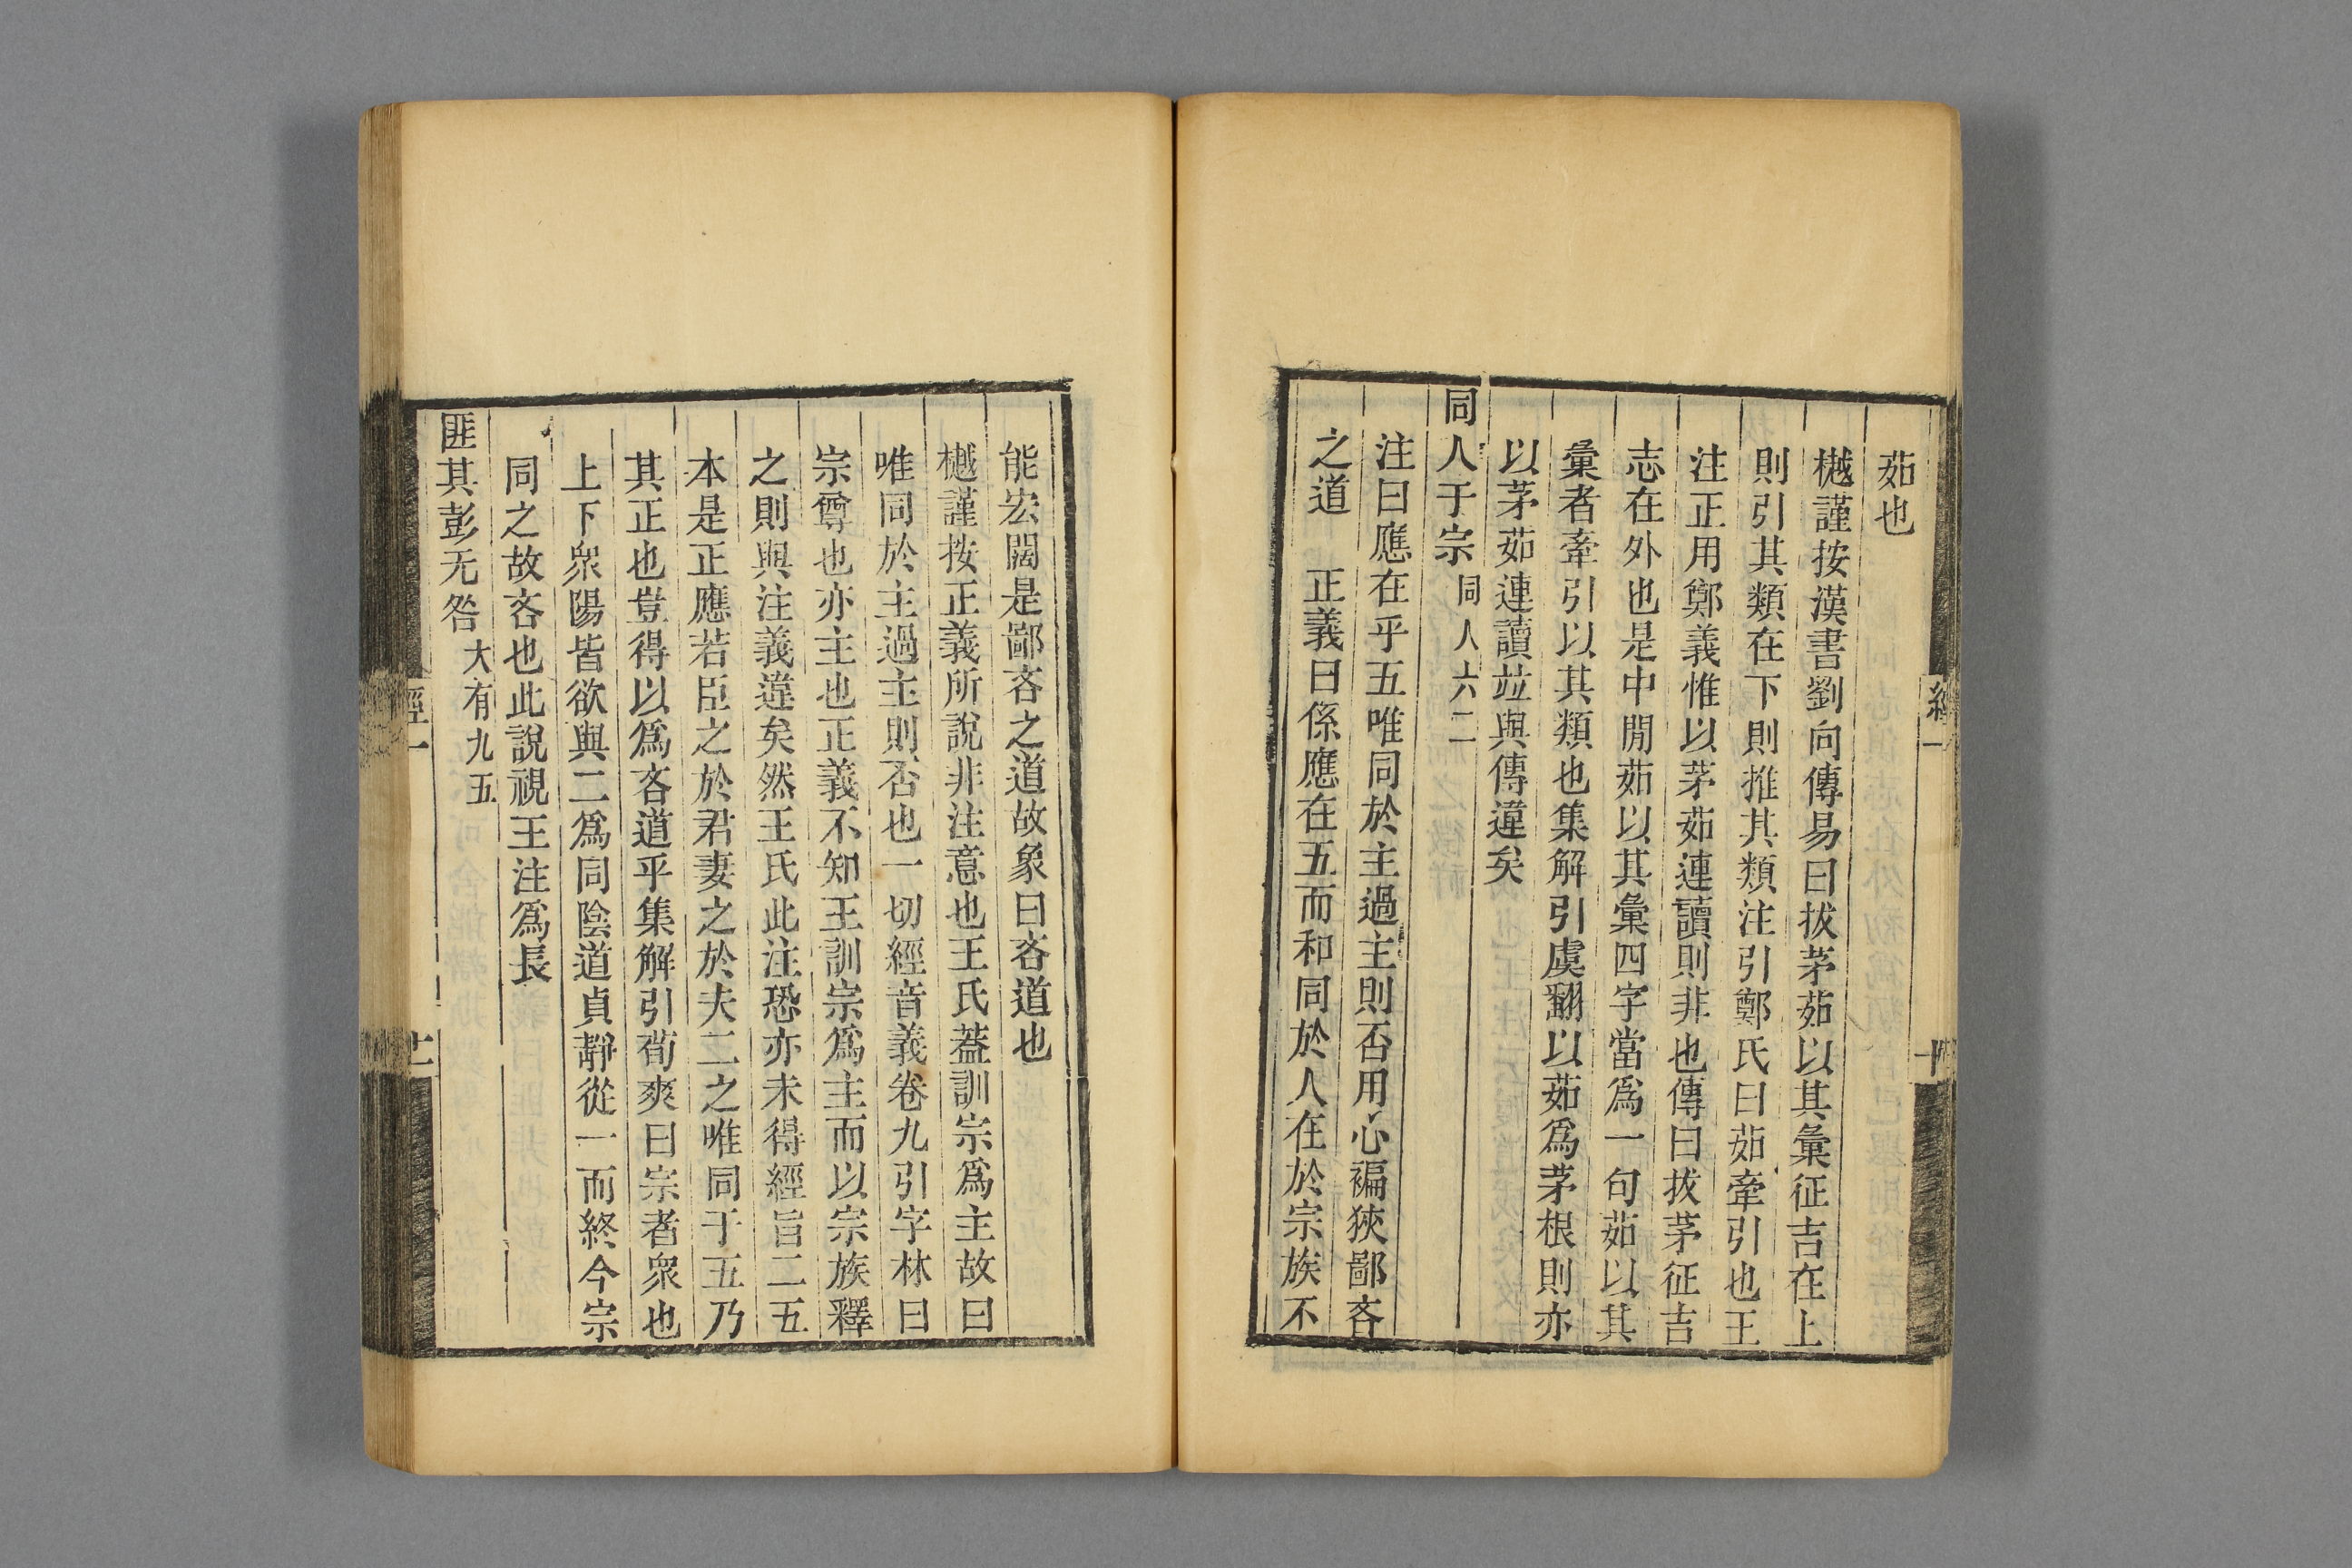 茹也
樾謹按漢書劉向傳易曰拔茅茹以其彙征吉在上
則引其類在下則推其類注引鄭氏曰茹牽引也王
注正用鄭義惟以茅茹連讀則非也傳曰拔茅征吉
志在外也是中閒茹以其彙四字當爲一句茹以其
彙者牽引以其類也集解引虞翻以茹爲茅根則亦
以茅茹連讀竝與傳違矣
同人于宗同人六二
注曰應在乎五唯同於主過主則否用心褊狹鄙吝
之道 正義曰係應在五而和同於人在於宗族不
能宏闊是鄙吝之道故象曰吝道也
樾謹按正義所說非注意也王氏蓋訓宗爲主故曰
唯同於主過主則否也一切經音義卷九引字林曰
宗尊也亦主也正義不知王訓宗爲主而以宗族釋
之則與注義違矣然王氏此注恐亦未得經旨二五
本是正應若臣之於君妻之於夫二之唯同于五乃
其正也豈得以爲吝道乎集解引荀爽曰宗者衆也
上下衆陽皆欲與二爲同陰道貞靜從一而終今宗
同之故吝也此說視王注爲長
匪其彭无咎大有九五
經一